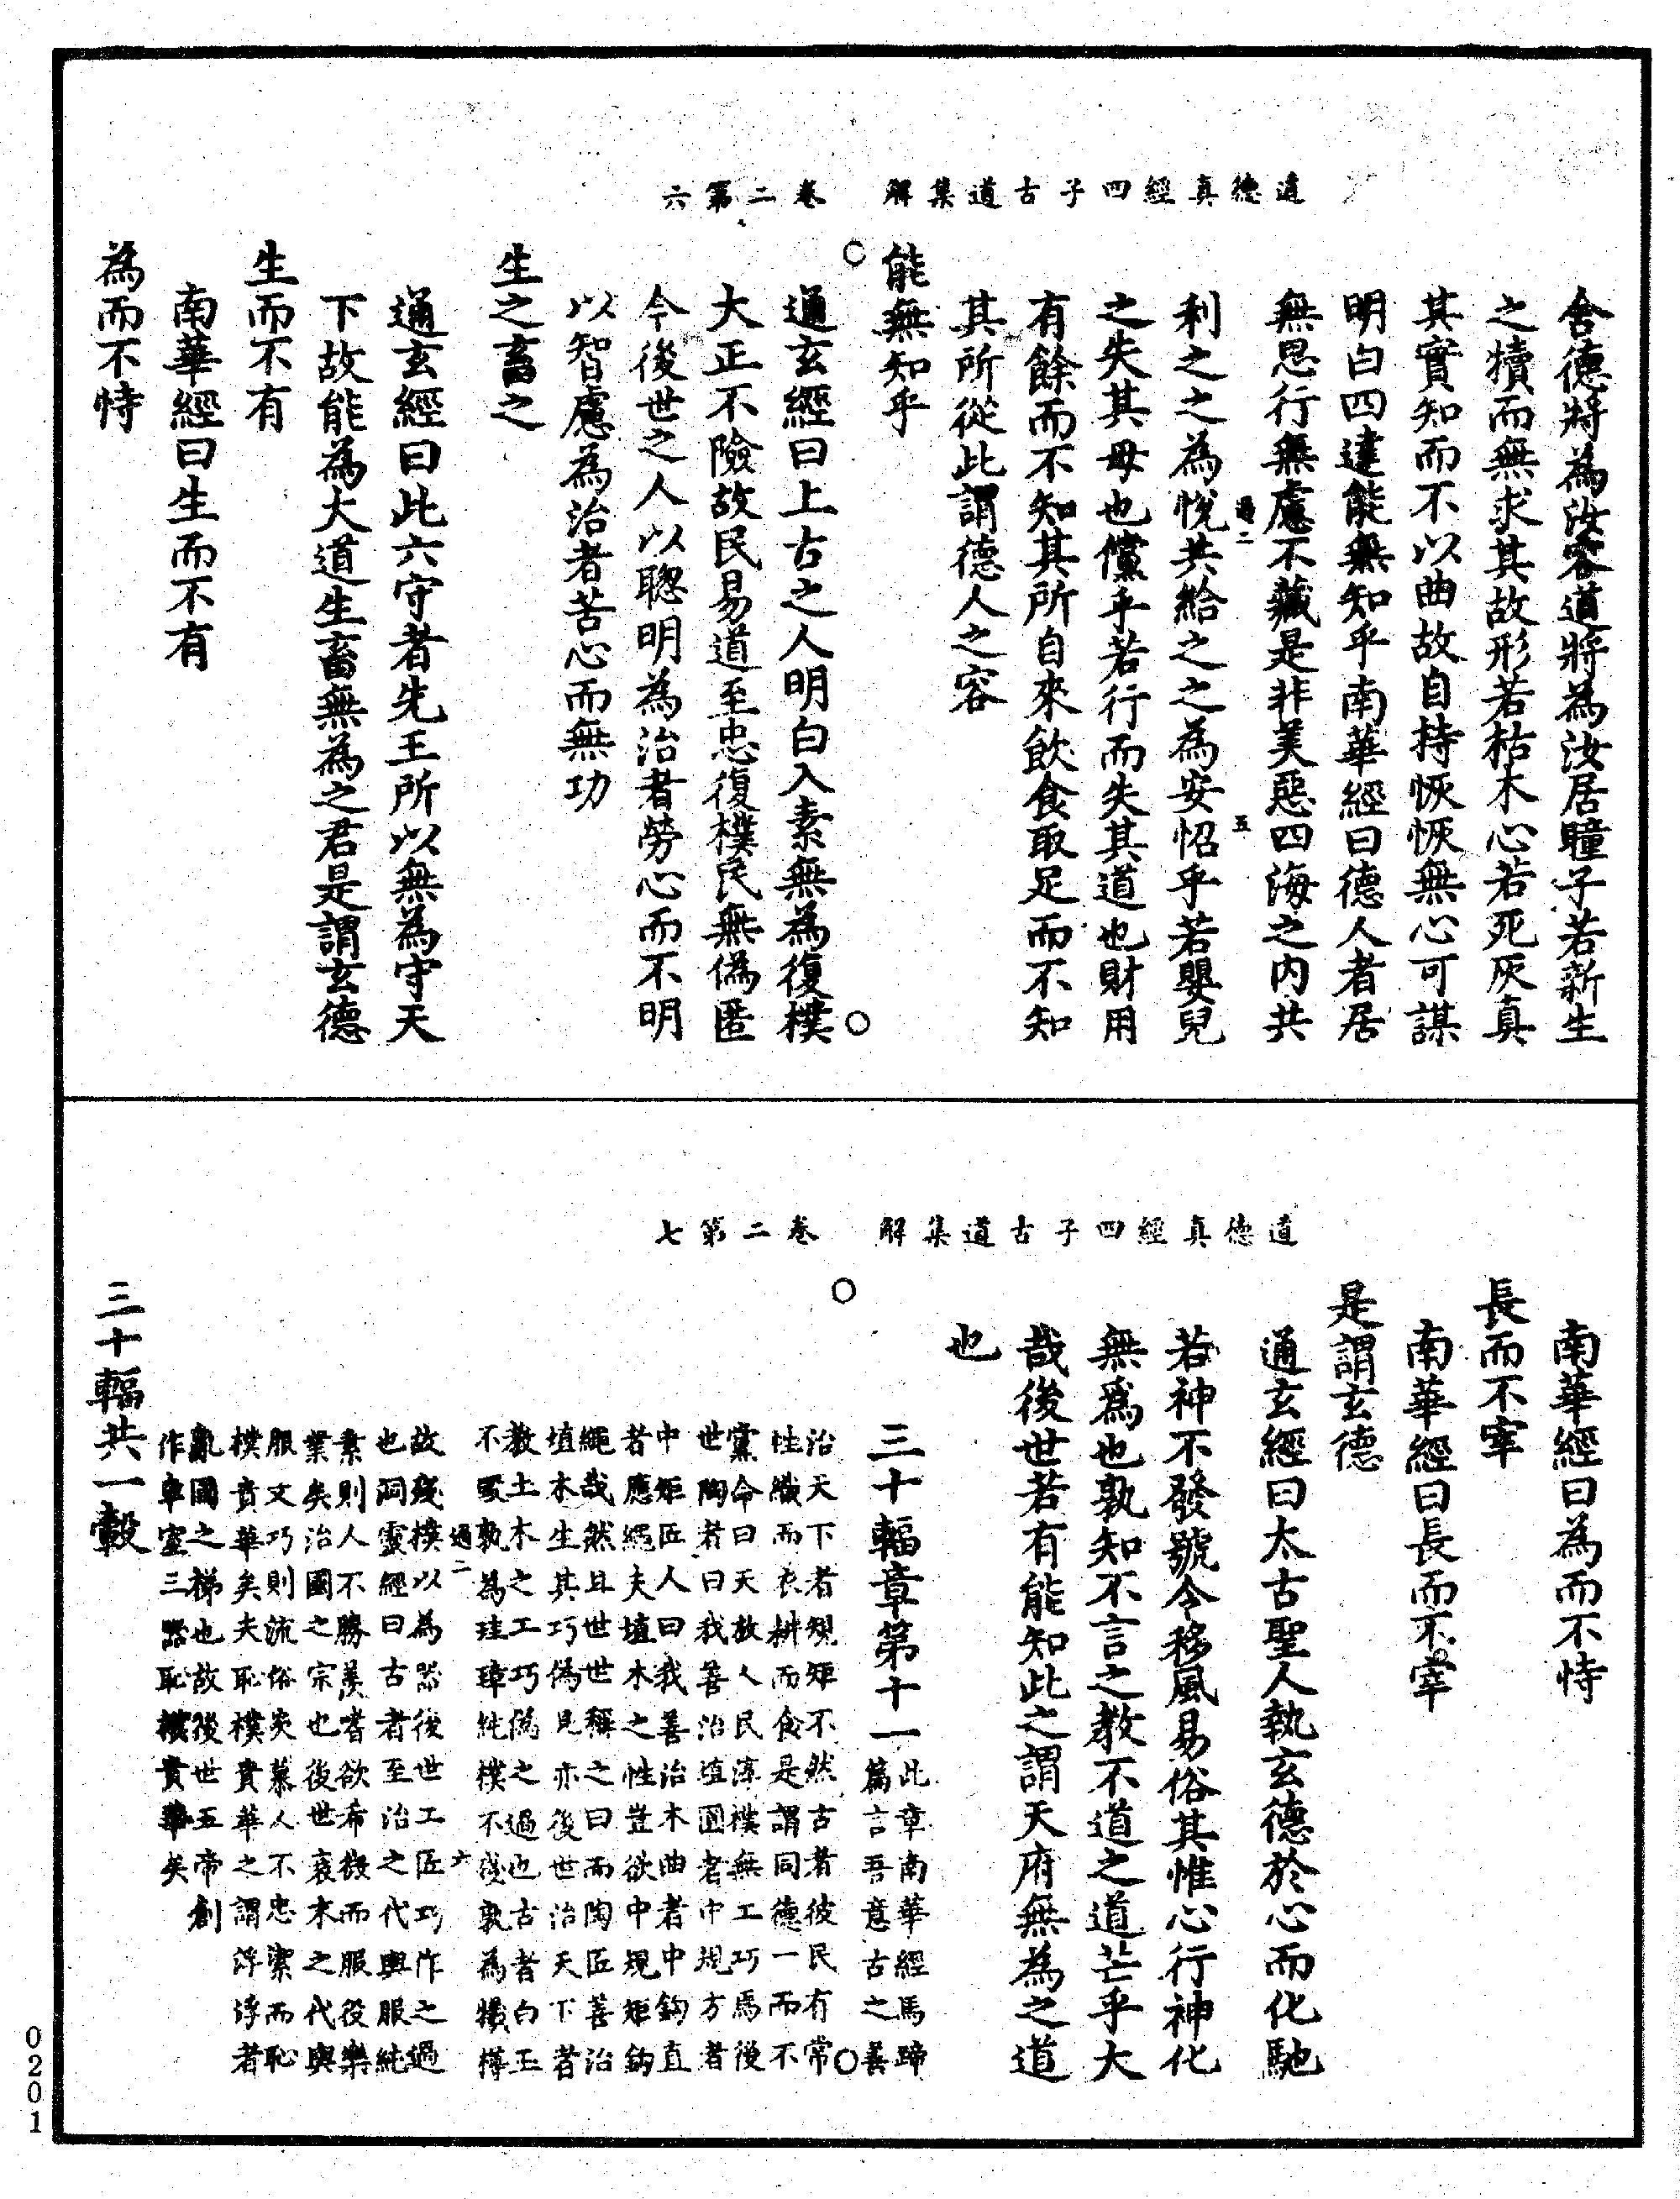 道德真經四子古道集解　卷二第六
舍德將為汝容道將為汝居瞳子若新生
之犢而無求其故形若枯木心若死灰真
其實知而不以曲故自持恢恢無心可謀
明白四達能無知乎南華經曰德人者居
無思行無慮不藏是非美惡四海之內共
過二　五
利之之為悅共給之之為安怊乎若嬰兒
之失其母也儻乎若行而失其道也財用
有餘而不知其所自來飲食取足而不知
其所從此謂德人之容
能無知乎
通玄經曰上古之人明白入素無為復樸
大正不險故民易道至忠復樸民無偽匿
今後世之人以聰明為治者勞心而不明
以智慮為治者苦心而無功
生之畜之
通玄經曰此六守者先王所以無為守天
下故能為大道生畜無為之君是謂玄德
生而不有
南華經曰生而不有
為而不恃
道德真經四子古道集解　卷二第七
南華經曰為而不恃
長而不宰
南華經曰長而不宰
是謂玄德
通玄經曰太古聖人執玄德於心而化馳
若神不發號令移風易俗其惟心行神化
無為也孰知不言之教不道之道芒乎大
哉後世若有能知此之謂天府無為之道
也
三十輻章第十一
此章南華經馬蹄
篇言吾意古之善
治天下者規矩不然古者彼民有常
性織而衣耕而食是謂同德一而不
黨命曰天放人民淳樸無工巧焉後
世陶者曰我善治埴圓者中規方者
中矩匠人曰我善治木曲者中鈎直
者應繩夫埴木之性豈欲中規矩鈎
繩哉然且世世稱之曰而陶匠善治
埴木生其巧偽見亦後世治天下者
教土木之工巧偽之過也古者白玉
不毀孰為珪璋純樸不殘孰為犧樽
過二　六
故殘樸以為器後世工匠巧作之過
也洞靈經曰古者至治之代輿服純
素則人不勝羨嗜欲希微而服役樂
業矣治國之宗也後世衰末之代輿
服文巧則流俗矣慕人不忠潔而恥
樸貴華矣夫恥樸貴華之謂浮浮者
亂國之梯也故後世五帝創
作車室三器恥樸貴華矣
三十輻共一轂
0201